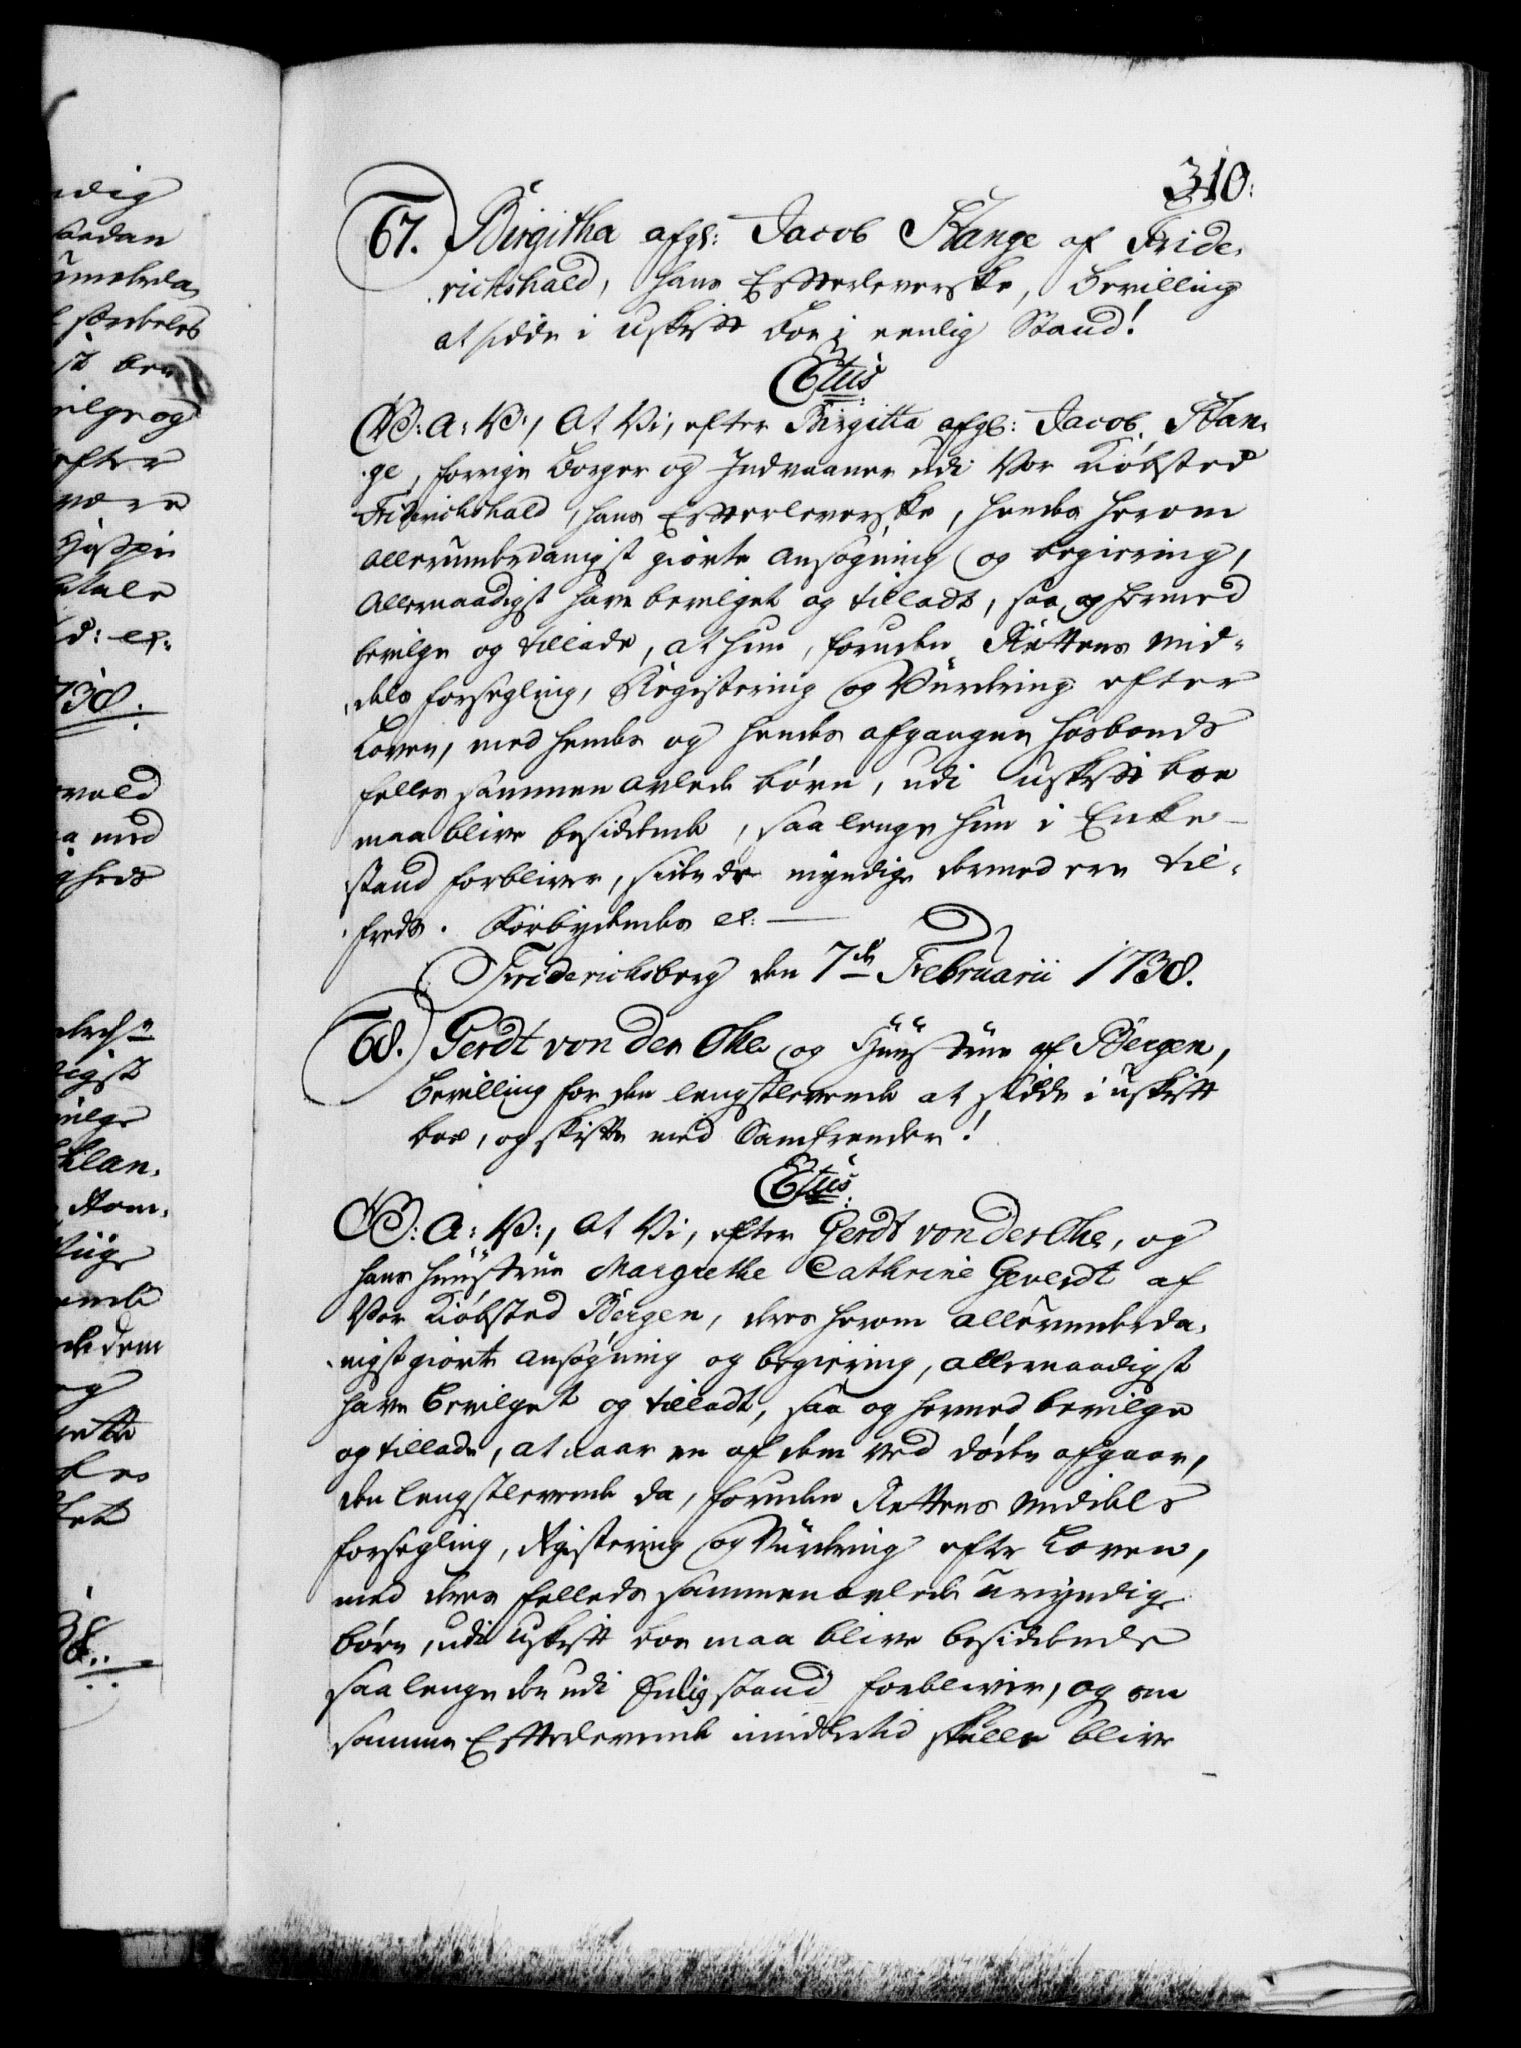 310:
67. Birgitha afgl: Jacob Stange af Fride-
richshald, hans Efterleverske, Bevilling
at sidde i uskift boe i eenlig Stand!
C5tus
W: A: V:, At Vi, efter Birgitta afgl: Jacob Stan-
ge, forrige borger og Indvaaner udi Vor Kiøbsted
Friderichshald, hans Efterleverske, hendes herom
allerunderdanigst giorte ansøgning og begiering,
Allernaadigst have bevilget og tilladt, saa og hermed
bevilge og tillade, at hun, foruden Rettens Mid-
dels forsegling, Registering og Vurdering efter
Loven, med hendes og hendes afgangne hosbonds
felles sammen avlede børn, udi uskift boe
maa blive besiddende, saa lenge hun i Enke-
stand forbliver, saa myndige dermed ere til-
freds. Forbydendes etc:
Friderichsberg den 7de Februarii 1738.
68. Gerdt von der Ohe og Huustrue af Bergen,
Bevilling for den lengstlevende at sidde i uskift
boe, og skifte med Samfrender!
C5tus
W: A: V:, At Vi, efter Gerdt von der Ohe, og
hans huustrue Margrethe Cathrine Geverdt af
Vor Kiøbsted Bergen, deres herom allerunderda-
nigst giorte ansøgning og begiering, allernaadigst
have bevilget og tilladt, saa og hermed bevilge
og tillade, at naar en af dem ved døden afgaar,
den lengstlevende da, foruden Rettens Middels
forsegling, Registering og Vurdering efter Loven,
med deres felleds sammenavlede umyndige
børn, udi uskift boe maa blive besiddende
saa lenge den udi Enlig stand forbliver, og om
samme Efterlevende imidlertid skulle blive